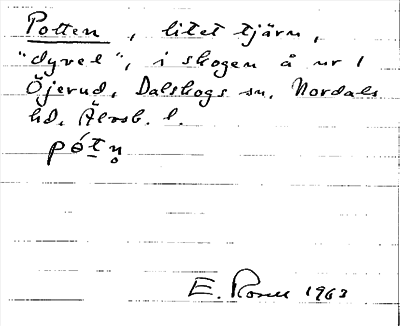 Potten, litet tjärn,
"dyvel", i skogen å nr 1
Öjerud, Dalskogs sn, Nordals
hd, Älvsb. l.
pótn̥
E. Rosell 1963